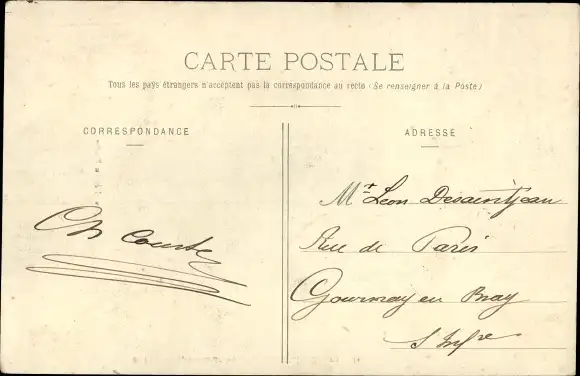 CARTE POSTALE
Tous les pays étrangers n'acceptent pas la correspondance au recto (Se renseigner à la Poste)
CORRESPONDANCE
ADRESSE
Mr Léon Desaintjean
Rue de Paris
Gournay en Bray
S Infre
Ch